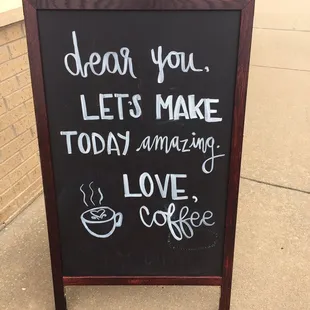 dear you,
LET'S MAKE
TODAY amazing.
LOVE,
coffee